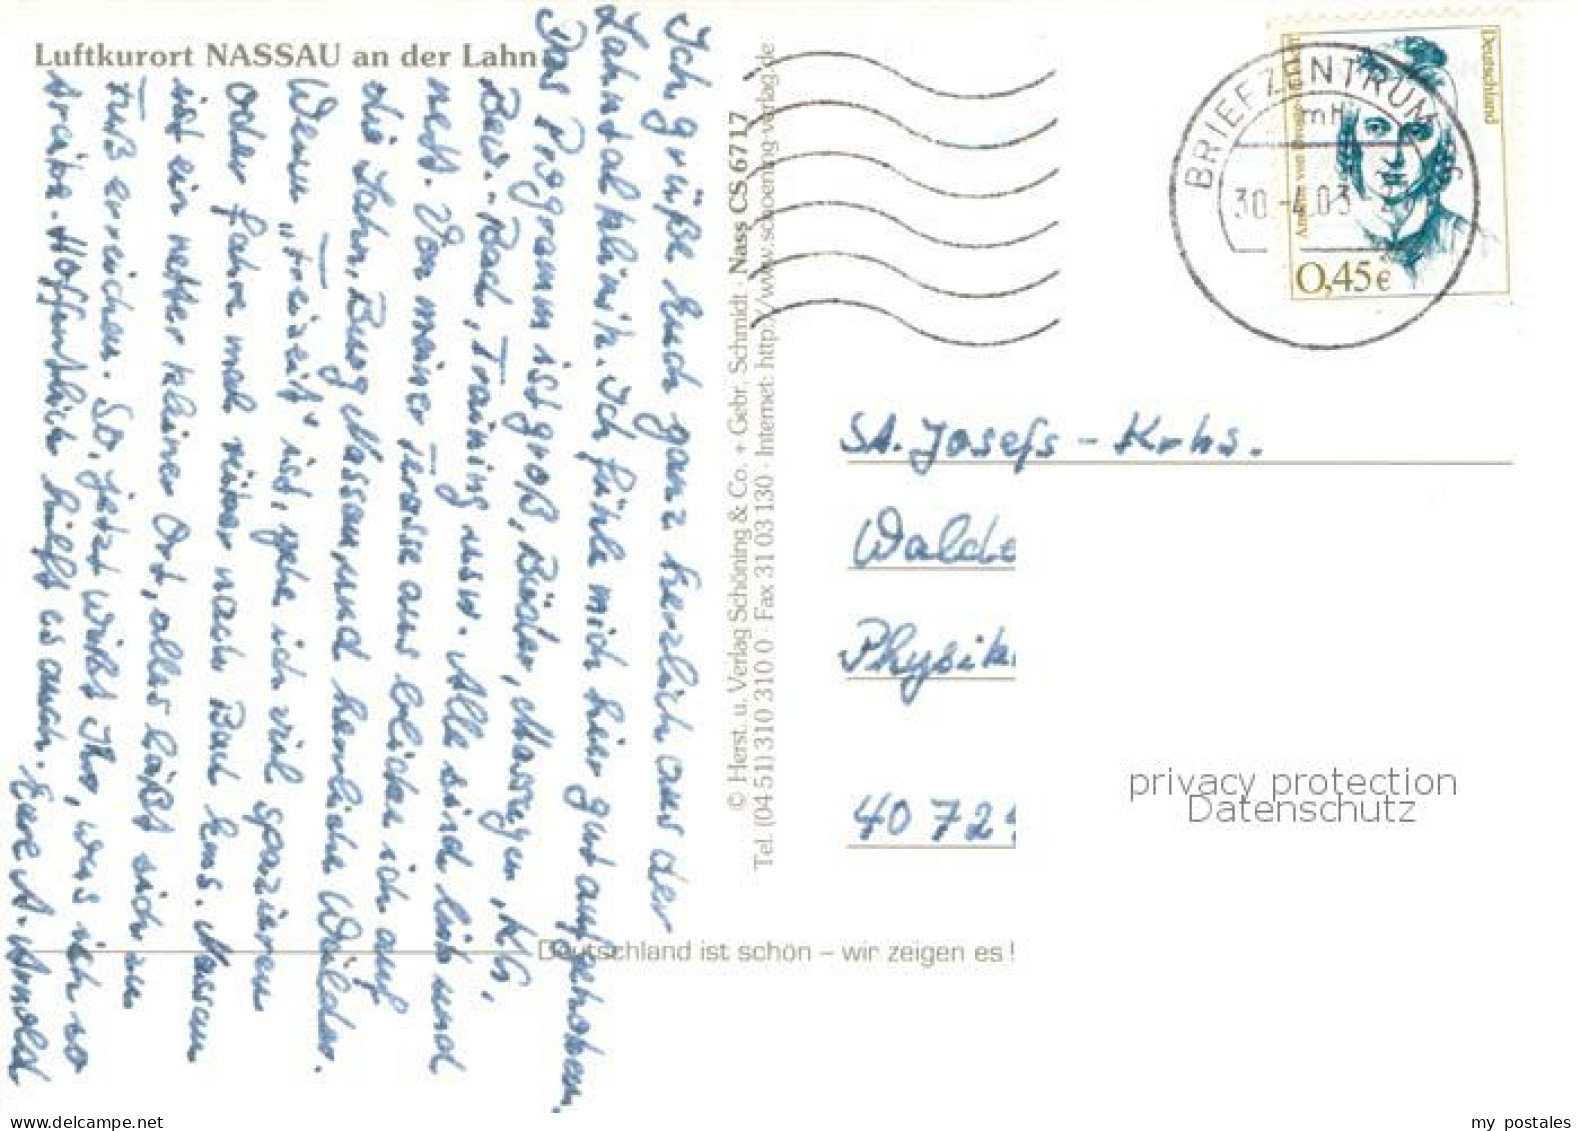 Luftkurort NASSAU an der Lahn
Ich grüße Euch ganz herzlich aus der
Lahntalklinik. Ich fühle mich hier gut aufgehoben.
Das Programm ist groß, Bäder, Massagen, KG,
Bew.-Bad, Training usw. Alle sind lieb und
nett. Von meiner Terrasse aus blicke ich auf
die Lahn, Burg Nassau, und herrliche Wälder.
Wenn „Freizeit" ist, gehe ich viel spazieren
oder fahre mal rüber nach Bad Ems. Nassau
ist ein netter kleiner Ort, alles läßt sich zu
Fuß erreichen. So, jetzt wißt Ihr, was ich so
treibe. Hoffentlich hilft es auch. Eure A. Arnold
© Herst. u. Verlag Schöning & Co. + Gebr. Schmidt · Nass CS 6717
Tel. (04 51) 310 310 0 · Fax 31 03 130 · Internet: http://www.schoening-verlag.de
Deutschland
0,45€
BRIEFZENTRUM
30.-4.03
St. Josefs-Krhs.
Walde
Physik
4072
privacy protection
Datenschutz
Deutschland ist schön – wir zeigen es!
www.delcampe.net
my_postales